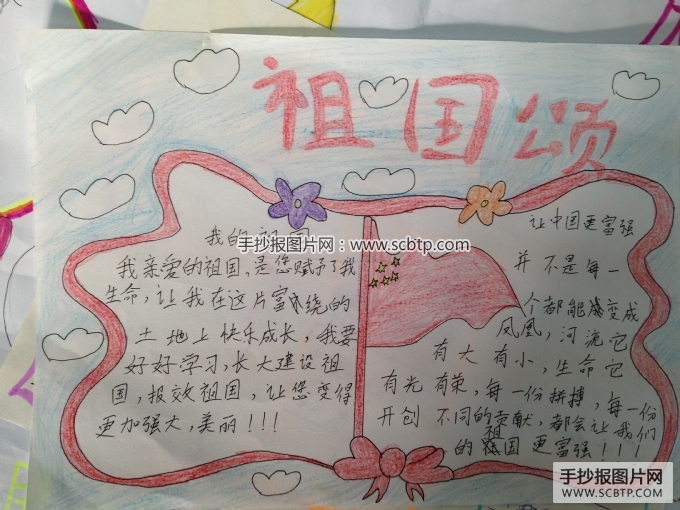 祖国颂
我的祖国
我亲爱的祖国,是您赋予了我
生命,让我在这片富饶的
土地上快乐成长,我要
好好学习,长大建设祖
国,报效祖国,让您变得
更加强大,美丽!!!
让中国更富强
并不是每一
个都能变成
凤凰,河流它
有大有小,生命它
有光有荣,每一份拼搏,每一份
开创不同的贡献,都会让我们
的祖国更富强!!!
手抄报图片网:www.scbtp.com
手抄报图片网
WWW.SCBTP.COM